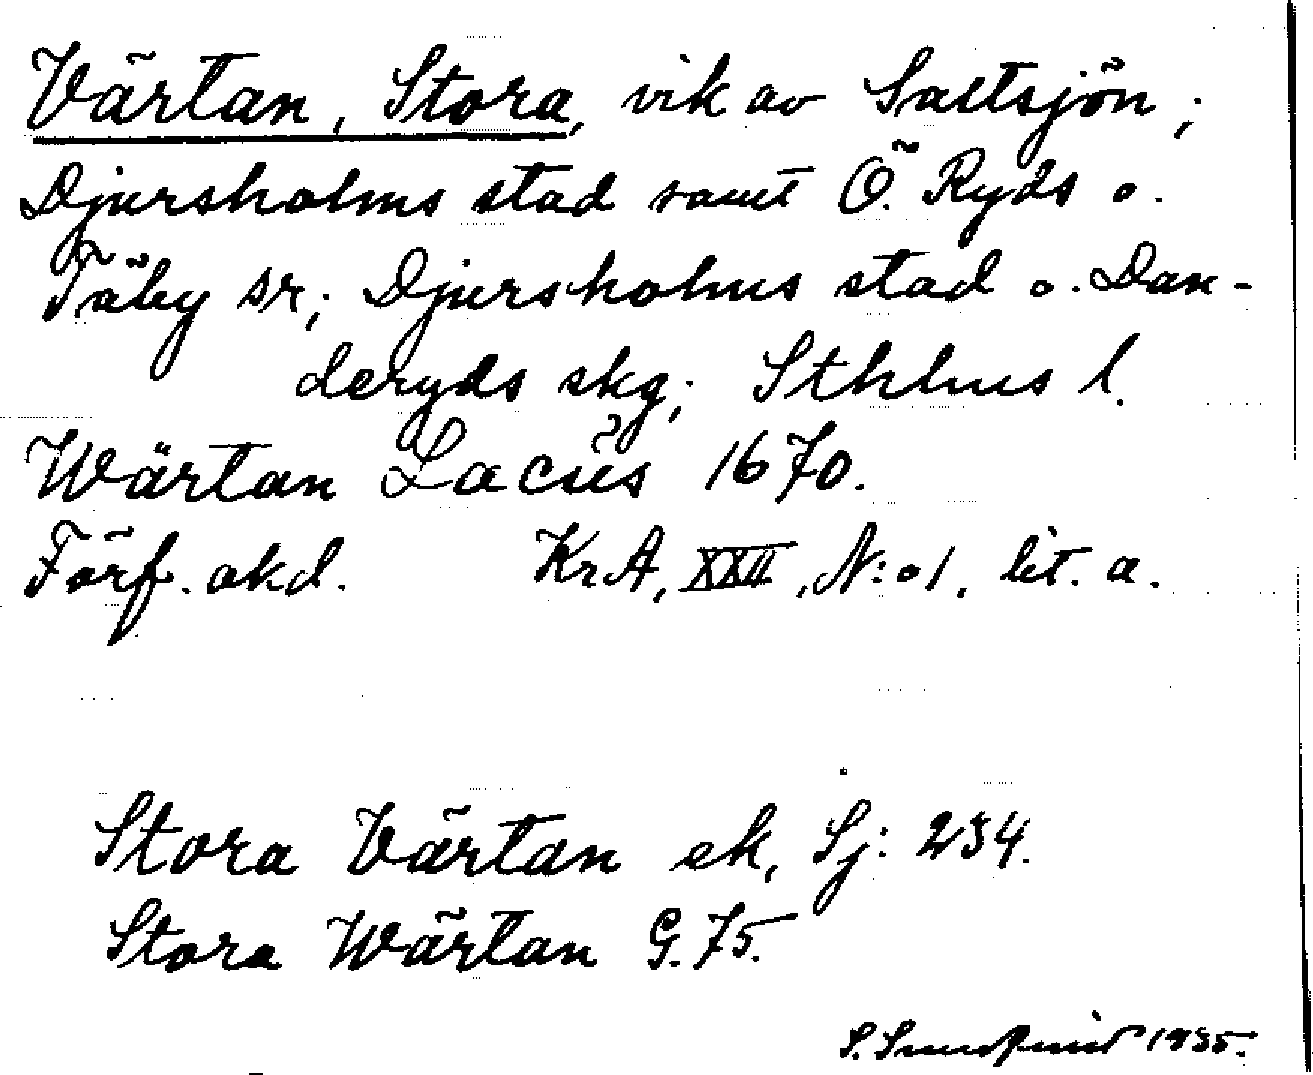 Värtan, Stora, vik av Saltsjön;
Djursholms stad samt Ö. Ryds o.
Täby sr; Djursholms stad o. Dan-
deryds skg; Sthlms l.
Wärtan Lacus 1670.
Förf. okd. KrA, XXII, N:o 1. lit. a.
Stora Värtan ek, Sj: 234.
Stora Wärtan G. 75.
S. 1935.